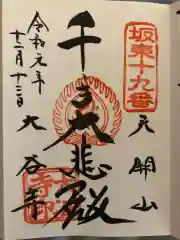 坂東十九番
天開山
千手大悲殿
令和元年
十二月十三日
大谷寺